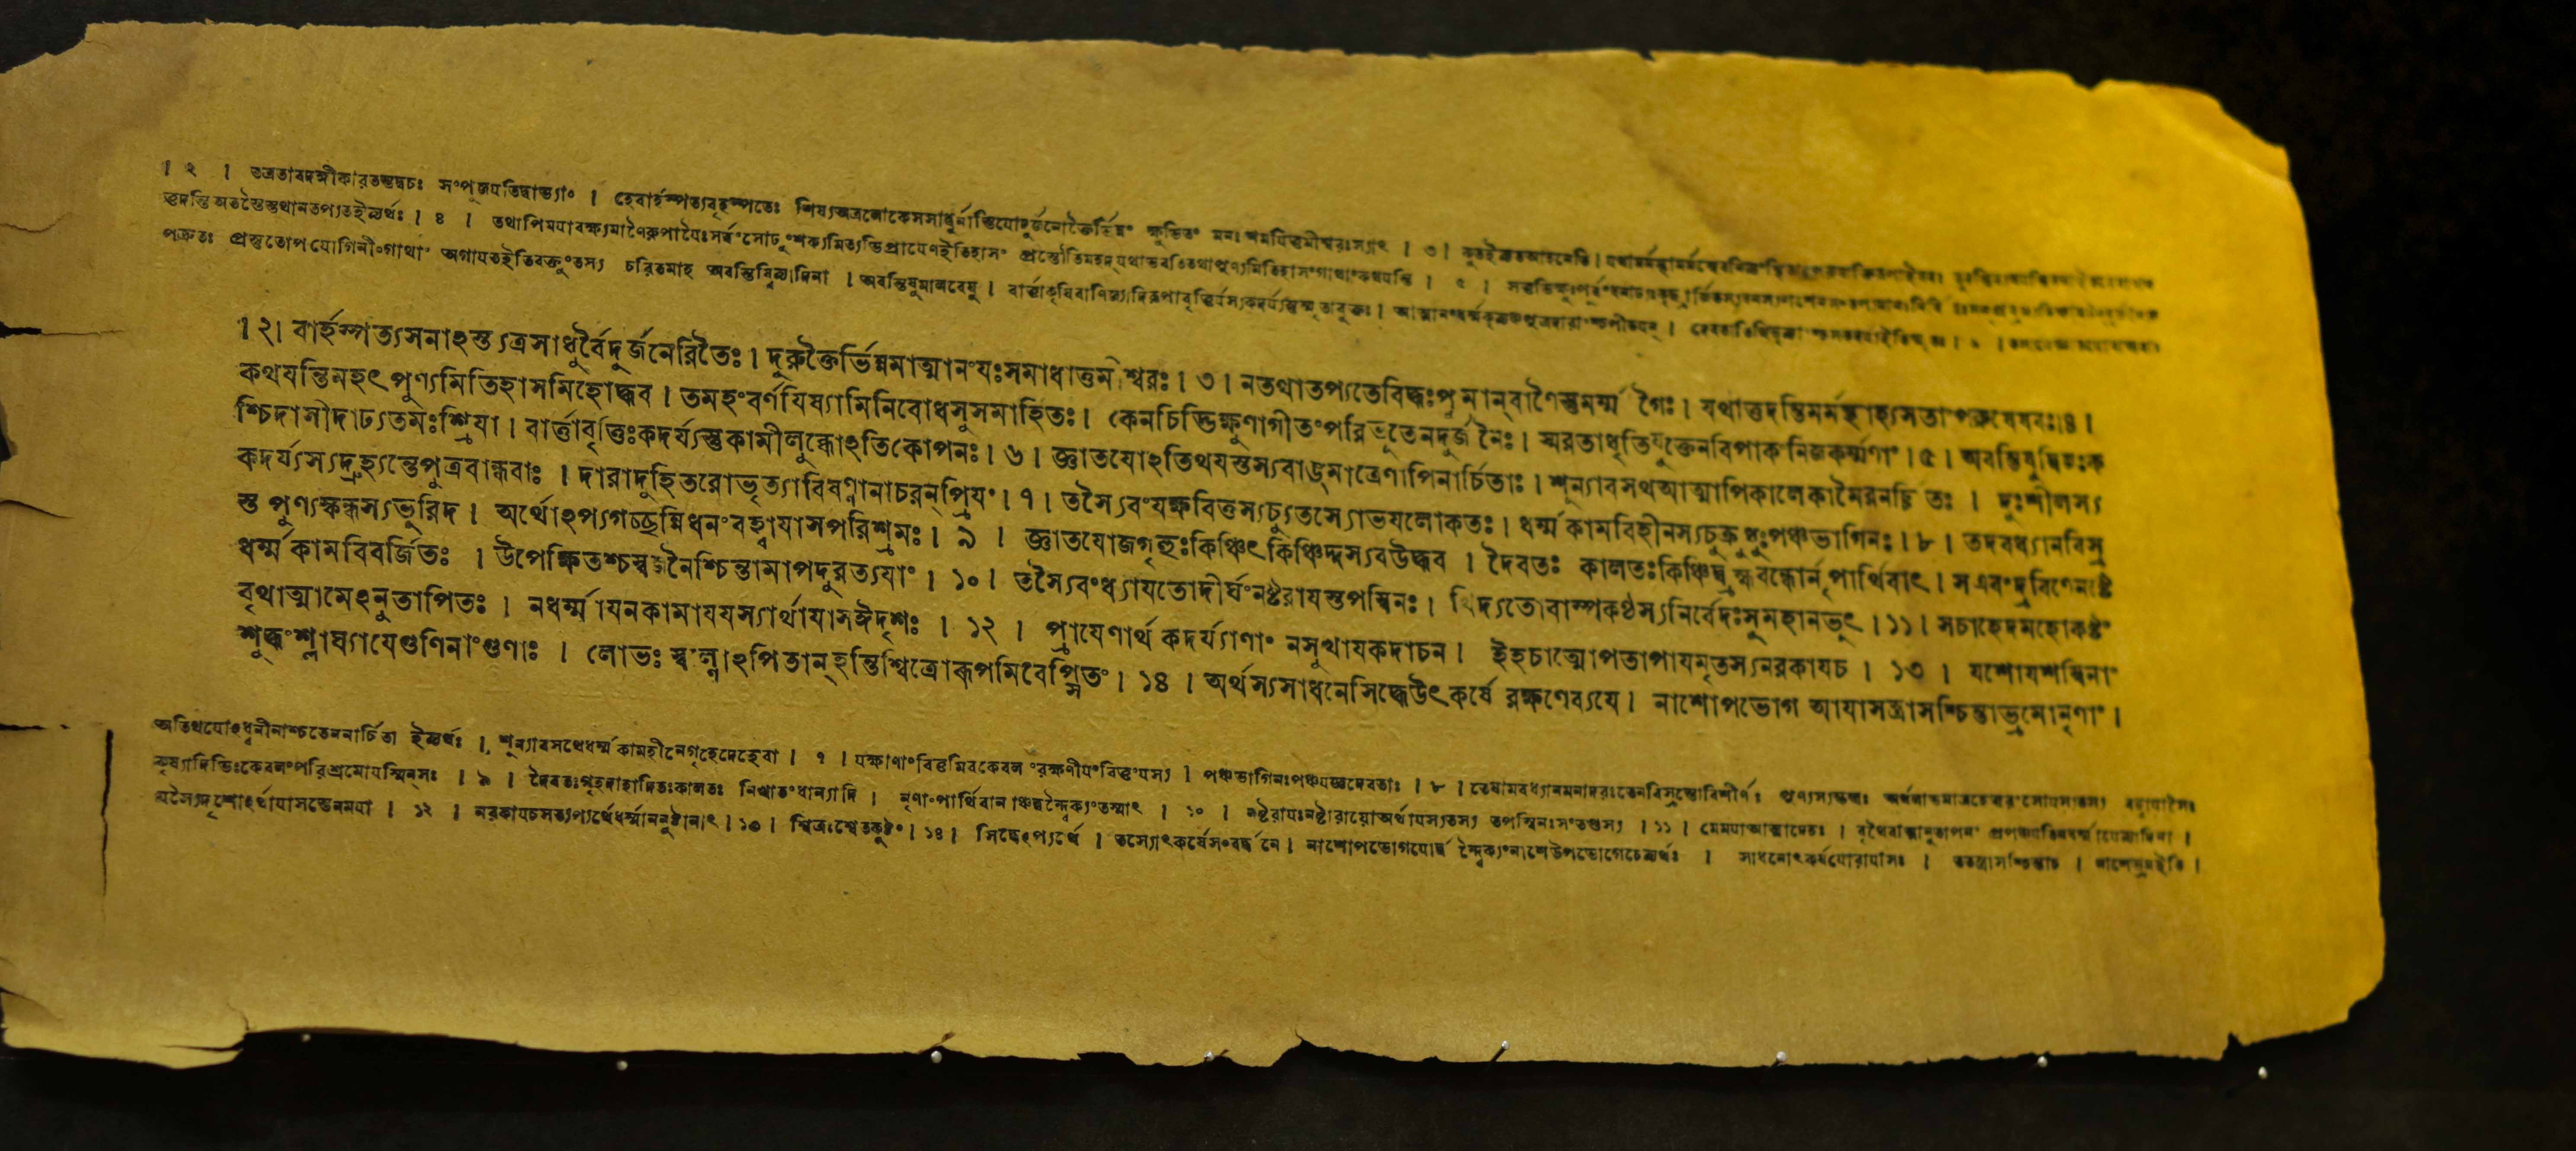 । ২ । তত্রতাবদঙ্গীকারতস্তদ্বচঃ সংপূজযতিদ্বাভ্যাং । হেবার্হস্পত্যবৃহস্পতেঃ শিষ্যঅত্রলোকেসসাধুর্নাস্তিযোদুর্জনোক্তৈর্ভিন্নং ক্ষুভিতং মনঃ । ৩ ।
তুদন্তি অতস্তৈস্তথানতপ্যতইত্যর্থঃ । ৪ । তথাপিমযাবক্ষ্যমাণৈরুপাযৈঃসর্ব্বংসোঢুংশক্যমিত্যভিপ্রাযেণইতিহাসং প্রস্তৌতি । ৫ ।
প্রস্তুতোপযোগিনীংগাথাং অগাযতইতিবক্তুংতস্য চরিতমাহ অবন্তিষ্বিত্যাদিনা । অবন্তিষুমালবেষু । বার্ত্তাকৃষিবাণিজ্যাদিরূপাবৃত্তির্যস্য
। ২। বার্হস্পত্যসনাঽস্ত্যত্রসাধুর্বৈদুর্জনেরিতৈঃ । দুরুক্তৈর্ভিন্নমাত্মানংযঃসমাধাত্তুমীশ্বরঃ । ৩ । নতথাতপ্যতেবিদ্ধঃপুমান্‌বাণৈস্তুমর্ম্মগৈঃ । যথাতুদন্তিমর্মস্থাহ্যসতাংপরুষেষবঃ।৪।
কথযন্তিমহৎ পুণ্যমিতিহাসমিহোদ্ধব । তমহংবর্ণযিষ্যামিনিবোধসুসমাহিতঃ । কেনচিদ্ভিক্ষুণাগীতংপরিভূতেনদুর্জনৈঃ । স্মরতাধৃতিযুক্তেনবিপাকংনিজকর্ম্মণাং ।৫। অবন্তিষুদ্বিজঃক
শ্চিদাসীদাঢ্যতমঃশ্রিযা । বার্ত্তাবৃত্তিঃকদর্য্যস্তুকামীলুব্ধোঽতিকোপনঃ । ৬ । জ্ঞাতযোঽতিথযস্তস্যবাঙ্মাত্রেণাপিনার্চিতাঃ । শূন্যাবসথআত্মাপিকালেকামৈরনর্চিতঃ । দুঃশীলস্য
কদর্য্যস্যদ্রুহ্যন্তেপুত্রবান্ধবাঃ । দারাদুহিতরোভৃত্যাবিষণ্ণানাচরন্‌প্রিযং । ৭ । তস্যৈবংযক্ষবিত্তস্যচ্যুতস্যোভযলোকতঃ । ধর্ম্মকামবিহীনস্যচুক্রুধুঃপঞ্চভাগিনঃ । ৮ । তদবধ্যানবিস্র
স্ত পুণ্যস্কন্ধস্যভূরিদ । অর্থোঽপ্যগচ্ছন্নিধনংবহ্বাযাসপরিশ্রমঃ । ৯ । জ্ঞাতযোজগৃহুঃকিঞ্চিৎ কিঞ্চিদ্দস্যবউদ্ধব । দৈবতঃ কালতঃকিঞ্চিদ্ব্রহ্মবন্ধোর্নৃপার্থিবাৎ । সএবংদ্রবিণেনষ্টে
ধর্ম্মকামবিবর্জিতঃ । উপেক্ষিতশ্চস্বজনৈশ্চিন্তামাপদুরত্যযাং । ১০ । তস্যৈবংধ্যাযতোদীর্ঘংনষ্টরাযস্তপস্বিনঃ । খিদ্যতোবাষ্পকণ্ঠস্যনির্বেদঃসুমহানভূৎ । ১১ । সচাহেদমহোকষ্টং
বৃথাত্মামেঽনুতাপিতঃ । নধর্ম্মাযনকামাযযস্যার্থাযাসঈদৃশঃ । ১২ । প্রাযেণার্থ কদর্য্যাণাং নসুখাযকদাচন । ইহচাত্মোপতাপাযমৃতস্যনরকাযচ । ১৩ । যশোযশস্বিনাং
শুদ্ধংশ্লাঘ্যাযেগুণিনাংগুণাঃ । লোভঃ স্বল্পোঽপিতান্‌হন্তিশ্বিত্রোরূপমিবেপ্সিতং । ১৪ । অর্থস্যসাধনেসিদ্ধেউৎকর্ষে রক্ষণেব্যযে । নাশোপভোগ আযাসত্রাসশ্চিন্তাভ্রমোনৃণাং ।
অতিথযোঽধ্বনীনাশ্চতেননার্চিতা ইত্যর্থঃ । শূন্যাবসথেধর্ম্মকামহীনেগৃহেদেহেবা । ৭ । যক্ষাণাংবিত্তমিবকেবলংরক্ষণীযংবিত্তংযস্য । পঞ্চভাগিনঃপঞ্চযজ্ঞদেবতাঃ । ৮ । তেষামবধ্যানমনাদরঃতেনবিস্রস্তোবিশীর্ণঃ
কৃষ্যাদিভিঃকেবলংপরিশ্রমোযস্মিন্‌সঃ । ৯ । দৈবতঃগৃহদাহাদিতঃকালতঃ নিখাতংধান্যাদি । নৃণাংপার্থিবানাঞ্চদ্বন্দ্বৈক্যংতস্মাৎ । ১০ । নষ্টরাযঃনষ্টোরাযোঅর্থাযস্যতস্য তপস্বিনঃসংতপ্তস্য । ১১ । মেমযাআত্মাদেহঃ ।
যস্যৈদৃশোঽর্থাযাসস্তেনমযা । ১২ । নরকাযচসত্যপ্যর্থেধর্ম্মাননুষ্ঠানাৎ । ১৩ । শ্বিত্রঃশ্বেতকুষ্ঠং । ১৪ । সিদ্ধেঽপ্যর্থে । তস্যোৎকর্ষেসংবর্দ্ধনে । নাশোপভোগযোর্দ্বন্দ্বৈক্যংনাশেউপভোগেচেত্যর্থঃ । সাধনোৎকর্ষযোরাযাসঃ । ততস্ত্রাসশ্চিন্তাচ । নাশেভ্রমইতি ।